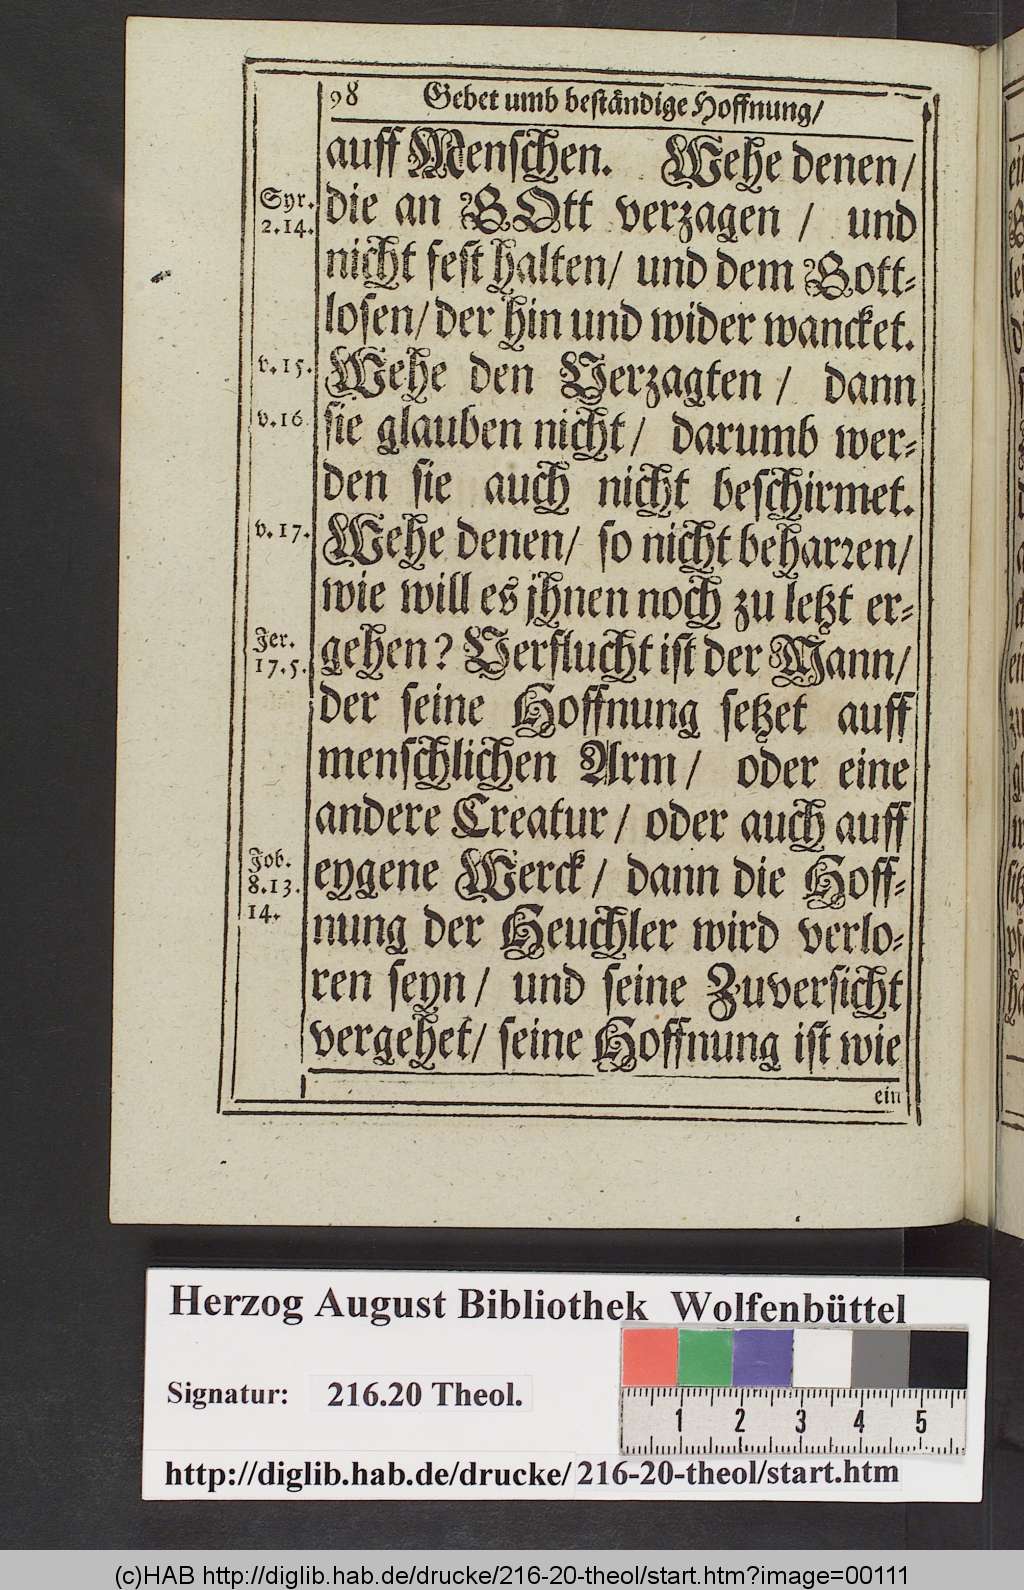 98 Gebet umb beständige Hoffnung/
auff Menschen. Wehe denen/
Syr. 2.14.
die an GOtt verzagen / und
nicht fest halten/ und dem Gott-
losen/ der hin und wider wancket.
v. 15.
Wehe den Verzagten / dann
v. 16
sie glauben nicht/ darumb wer-
den sie auch nicht beschirmet.
v. 17.
Wehe denen/ so nicht beharren/
wie will es jhnen noch zu letzt er-
Jer. 17. 5.
gehen? Verflucht ist der Mann/
der seine Hoffnung setzet auff
menschlichen Arm / oder eine
andere Creatur / oder auch auff
Job. 8. 13. 14.
eygene Werck / dann die Hoff-
nung der Heuchler wird verlo-
ren seyn / und seine Zuversicht
vergehet/ seine Hoffnung ist wie
ein
Herzog August Bibliothek Wolfenbüttel
Signatur: 216.20 Theol.
1 2 3 4 5
http://diglib.hab.de/drucke/ 216-20-theol/start.htm
(c)HAB http://diglib.hab.de/drucke/216-20-theol/start.htm?image=00111